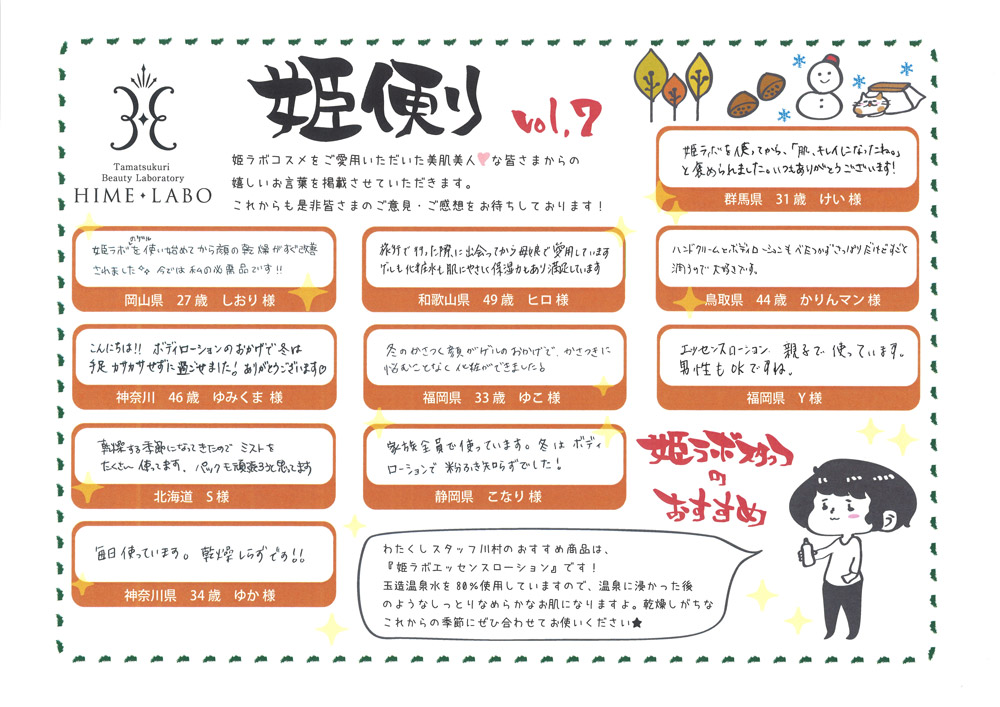 姫便り
vol.7
Tamatsukuri
Beauty Laboratory
HIME LABO
姫ラボコスメをご愛用いただいた美肌美人な皆さまからの
嬉しいお言葉を掲載させていただきます。
これからも是非皆さまのご意見・ご感想をお待ちしております！
姫ラボを使ってから、「肌、キレイになったね。」
と褒められました。いつもありがとうございます!
群馬県　31歳　けい様
のゲル
姫ラボを使い始めてから顔の乾燥がすごく改善
されました 今では私の必需品です!!
岡山県　27歳　しおり様
旅行で行った際に出会ってから母娘で愛用しています
ゲルも化粧水も肌にやさしく保湿力もあり満足しています
和歌山県　49歳　ヒロ様
ハンドクリームとボディローションもベタつかずさっぱりだけどすごく
潤うので大好きです。
鳥取県　44歳　かりんマン様
こんにちは!! ボディローションのおかげで冬は
手足カサカサせずに過ごせました! ありがとうございます
神奈川　46歳　ゆみくま様
冬のかさつく顔がゲルのおかげで、かさつきに
悩むことなく化粧ができました
福岡県　33歳　ゆこ様
エッセンスローション 親子で使っています。
男性もOKですね。
福岡県　Y様
乾燥する季節になってきたので ミストを
たくさん使ってます、パックも頑張ろうと思ってます
北海道　S様
家族全員で使っています。冬はボディ
ローションで粉ふき知らずでした!
静岡県　こなり様
毎日使っています。乾燥しらずです!!
神奈川県　34歳　ゆか様
姫ラボスタッフ
の
おすすめ
わたくしスタッフ川村のおすすめ商品は、
『姫ラボエッセンスローション』です！
玉造温泉水を80%使用していますので、温泉に浸かった後
のようなしっとりなめらかなお肌になりますよ。乾燥しがちな
これからの季節にぜひ合わせてお使いください★